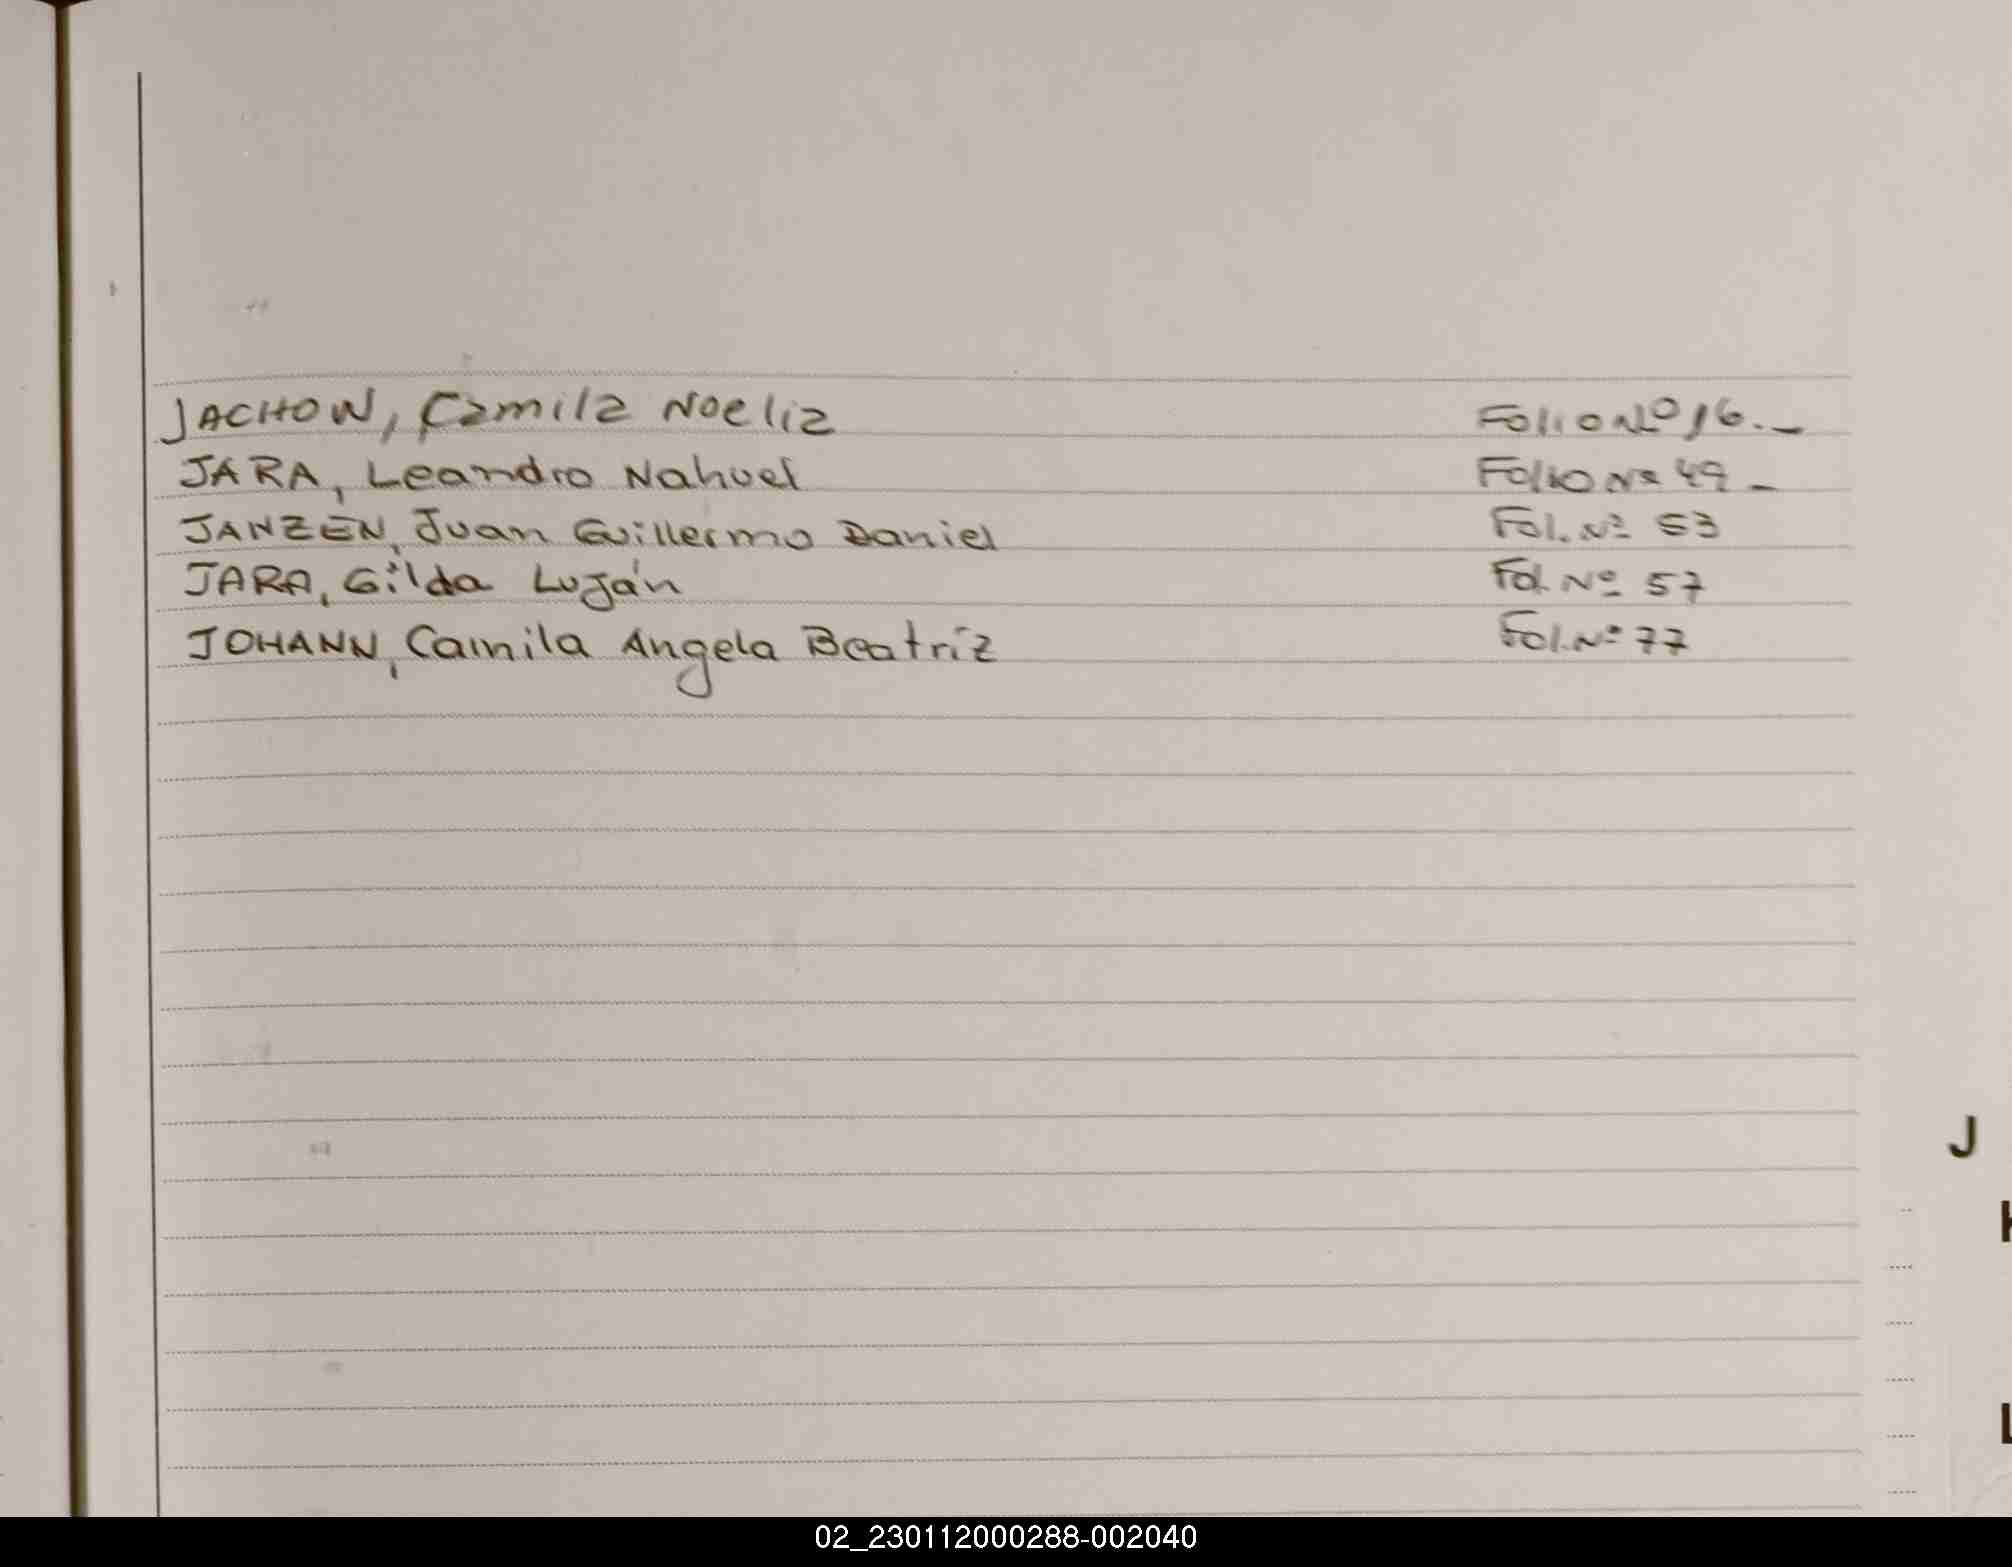 JACHOW, Camila Noelia Folio Nº 16.-
JARA, Leandro Nahuel Folio Nº 49 -
JANZEN, Juan Guillermo Daniel Fol. Nº 53
JARA, Gilda Luján Fol. Nº 57
JOHANN, Camila Angela Beatriz Fol. Nº 77
J
L
02_230112000288-002040